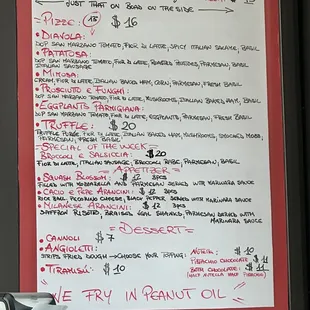 JUST THAT ON BOARD ON THE SIDE
= PIZZE: 18" $16
• DIAVOLA:
DOP SAN MARZANO TOMATO, FIOR DI LATTE, SPICY ITALIAN SALAME, BASIL
• PATATOSA:
DOP SAN MARZANO TOMATO, FIOR DI LATTE, ROASTED POTATOES, PARMESAN, BASIL
ITALIAN SAUSAGE
• MIMOSA:
CREAM, FIOR DI LATTE, ITALIAN BAKED HAM, CORN, PARMESAN, FRESH BASIL
• PROSCIUTTO E FUNGHI:
DOP SAN MARZANO TOMATO, FIOR DI LATTE, MUSHROOMS, ITALIAN BAKED HAM, BASIL
• EGGPLANTS PARMIGIANA:
DOP SAN MARZANO TOMATO, FIOR DI LATTE, EGGPLANTS, PARMESAN, FRESH BASIL
• TRUFFLE: $20
TRUFFLE PUREE, FIOR DI LATTE, ITALIAN BAKED HAM, MUSHROOMS, SMOKED MOZZ,
PARMESAN, FRESH BASIL
= SPECIAL OF THE WEEK =
BROCCOLI E SALSICCIA: $20
FIOR DI LATTE, ITALIAN SAUSAGE, BROCCOLI RABE, PARMESAN, BASIL
= APPETIZER =
• SQUASH BLOSSOM: $12 3PCS
FILLED WITH MOZZARELLA AND PARMESAN SERVED WITH MARINARA SAUCE
• CACIO E PEPE ARANCINI: $12 3PCS
RICE BALL, PECORINO CHEESE, BLACK PEPPER SERVED WITH MARINARA SAUCE
• MILANESE ARANCINI: $12 3PCS
SAFFRON RISOTTO, BRAISED VEAL SHANKS, PARMESAN SERVED WITH
MARINARA SAUCE
= DESSERT =
• CANNOLI $7
• ANGIOLETTI:
STRIPS FRIED DOUGH → CHOOSE YOUR TOPPING:
NUTELLA $10
PISTACHIO CHOCOLATE $11
BOTH CHOCOLATE $11
(HALF NUTELLA HALF PISTACHIO)
• TIRAMISÙ $10
"WE FRY IN PEANUT OIL"